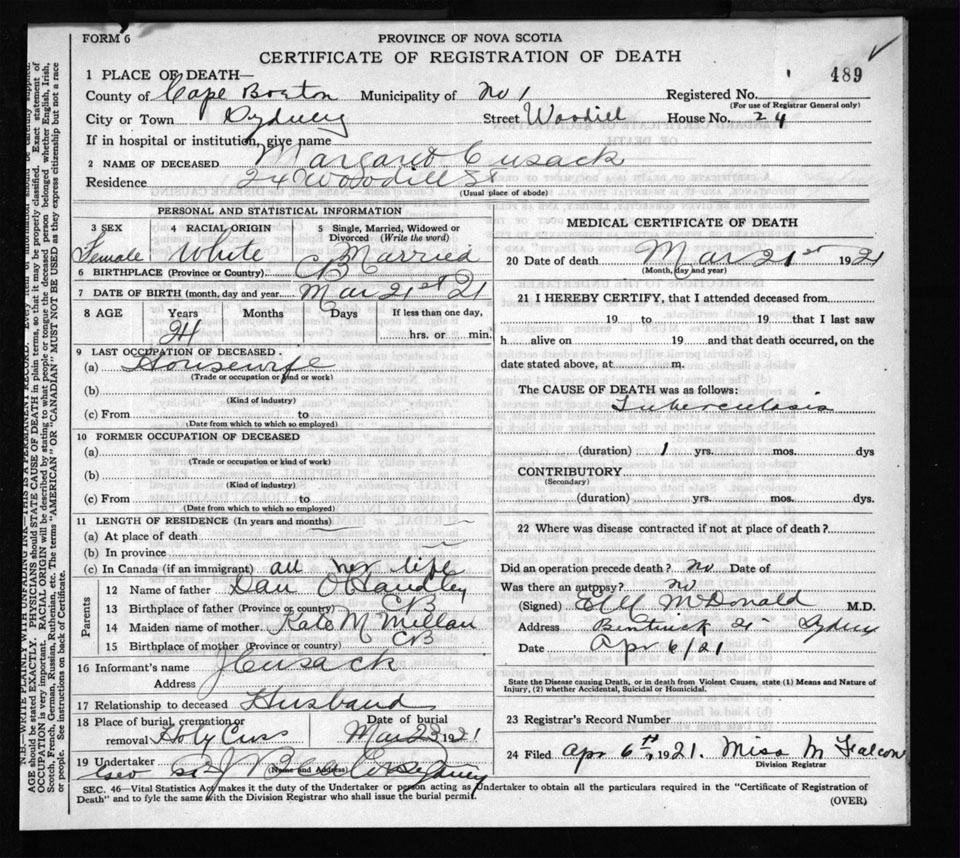 FORM 6
PROVINCE OF NOVA SCOTIA
CERTIFICATE OF REGISTRATION OF DEATH
489
1 PLACE OF DEATH—
County of Cape Breton Municipality of No 1 Registered No.
(For use of Registrar General only)
City or Town Sydney Street Woodill House No. 24
If in hospital or institution, give name
2 NAME OF DECEASED Margaret Cusack
Residence 24 Woodill St
(Usual place of abode)
PERSONAL AND STATISTICAL INFORMATION
3 SEX 4 RACIAL ORIGIN 5 Single, Married, Widowed or Divorced (Write the word)
Female White Married
6 BIRTHPLACE (Province or Country) CB
7 DATE OF BIRTH (month, day and year Mar 21st 21
8 AGE Years Months Days If less than one day,
24 hrs. or min.
9 LAST OCCUPATION OF DECEASED
(a) Housewife
(Trade or occupation or kind or work)
(b)
(Kind of industry)
(c) From to
(Date from which to which so employed)
10 FORMER OCCUPATION OF DECEASED
(a)
(Trade or occupation or kind of work)
(b)
(Kind of industry)
(c) From to
(Date from which to which so employed)
11 LENGTH OF RESIDENCE (In years and months)
(a) At place of death
(b) In province
(c) In Canada (if an immigrant) all her life
Parents
12 Name of father Dan O'Handley
13 Birthplace of father (Province or country) CB
14 Maiden name of mother Kate McMillan
15 Birthplace of mother (Province or country) CB
16 Informant's name J Cusack
Address
17 Relationship to deceased Husband
18 Place of burial, cremation or Date of burial
removal Holy Cross Mar 23 1921
19 Undertaker
(Name and Address) Sydney
MEDICAL CERTIFICATE OF DEATH
20 Date of death Mar 21st 1921
(Month, day and year)
21 I HEREBY CERTIFY, that I attended deceased from
19 to 19 that I last saw
h alive on 19 and that death occurred, on the
date stated above, at m.
The CAUSE OF DEATH was as follows:
Tuberculosis
(duration) 1 yrs. mos. dys
CONTRIBUTORY
(Secondary)
(duration) yrs. mos. dys.
22 Where was disease contracted if not at place of death?
Did an operation precede death? No Date of
Was there an autropsy? no
(Signed) McDonald M.D.
Address Sydney
Date Apr 6/21
State the Disease causing Death, or in death from Violent Causes, state (1) Means and Nature of
Injury, (2) whether Accidental, Suicidal or Homicidal.
23 Registrar's Record Number
24 Filed Apr 6th, 1921. Miss M Falcon
Division Registrar
SEC. 46—Vital Statistics Act makes it the duty of the Undertaker or person acting as Undertaker to obtain all the particulars required in the "Certificate of Registration of
Death" and to fyle the same with the Division Registrar who shall issue the burial permit.
(OVER)
N.B.—WRITE PLAINLY WITH UNFADING INK—THIS IS A PERMANENT RECORD. Every item of information should be carefully supplied.
AGE should be stated EXACTLY. PHYSICIANS should STATE CAUSE OF DEATH in plain terms, so that it may be properly classified. Exact statement of
OCCUPATION is very important. RACIAL ORIGIN will be described by stating to what people or tongue the deceased person belonged whether English, Irish,
Scotch, French, German, Russian, Ruthenian, etc. The terms "AMERICAN" OR "CANADIAN" MUST NOT BE USED as they express citizenship but not a race
or people. See instructions on back of Certificate.